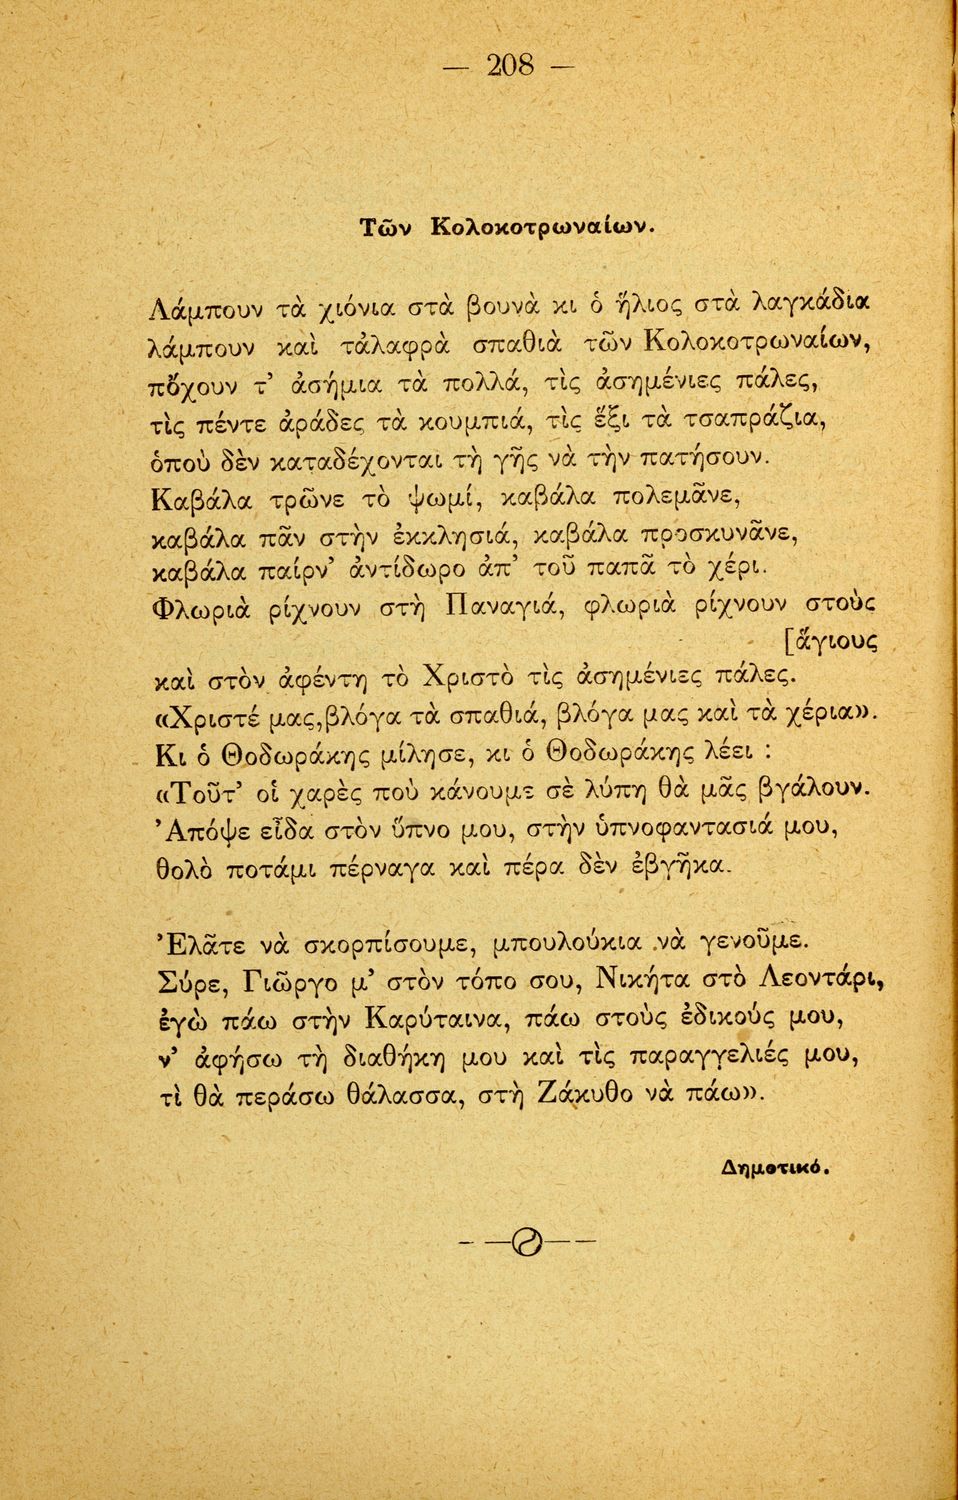 — 208 —
Τῶν Κολοκοτρωναίων.
Λάμπουν τὰ χιόνια στὰ βουνὰ κι ὁ ἥλιος στὰ λαγκάδια
λάμπουν καὶ τἀλαφρὰ σπαθιὰ τῶν Κολοκοτρωναίων,
πὄχουν τ’ ἀσήμια τὰ πολλά, τὶς ἀσημένιες πάλες,
τὶς πέντε ἀράδες τὰ κουμπιά, τὶς ἕξι τὰ τσαπράζια,
ὁποὺ δὲν καταδέχονται τὴ γῆς νὰ τὴν πατήσουν.
Καβάλα τρῶνε τὸ ψωμί, καβάλα πολεμᾶνε,
καβάλα πᾶν στὴν ἐκκλησιά, καβάλα προσκυνᾶνε,
καβάλα παίρν’ ἀντίδωρο ἀπ’ τοῦ παπᾶ τὸ χέρι.
Φλωριὰ ρίχνουν στὴ Παναγιά, φλωριὰ ρίχνουν στοὺς
[ἅγιους
καὶ στὸν ἀφέντη τὸ Χριστὸ τὶς ἀσημένιες πάλες.
«Χριστέ μας,βλόγα τὰ σπαθιά, βλόγα μας καὶ τὰ χέρια».
Κι ὁ Θοδωράκης μίλησε, κι ὁ Θοδωράκης λέει :
«Τοῦτ’ οἱ χαρὲς ποὺ κάνουμε σὲ λύπη θὰ μᾶς βγάλουν.
Ἀπόψε εἶδα στὸν ὕπνο μου, στὴν ὑπνοφαντασιά μου,
θολὸ ποτάμι πέρναγα καὶ πέρα δὲν ἐβγῆκα.
Ἐλᾶτε νὰ σκορπίσουμε, μπουλούκια νὰ γενοῦμε.
Σύρε, Γιῶργο μ’ στὸν τόπο σου, Νικήτα στὸ Λεοντάρι,
ἐγὼ πάω στὴν Καρύταινα, πάω στοὺς ἐδικούς μου,
ν’ ἀφήσω τὴ διαθήκη μου καὶ τὶς παραγγελιές μου,
τὶ θὰ περάσω θάλασσα, στὴ Ζάκυθο νὰ πάω».
Δημοτικό.